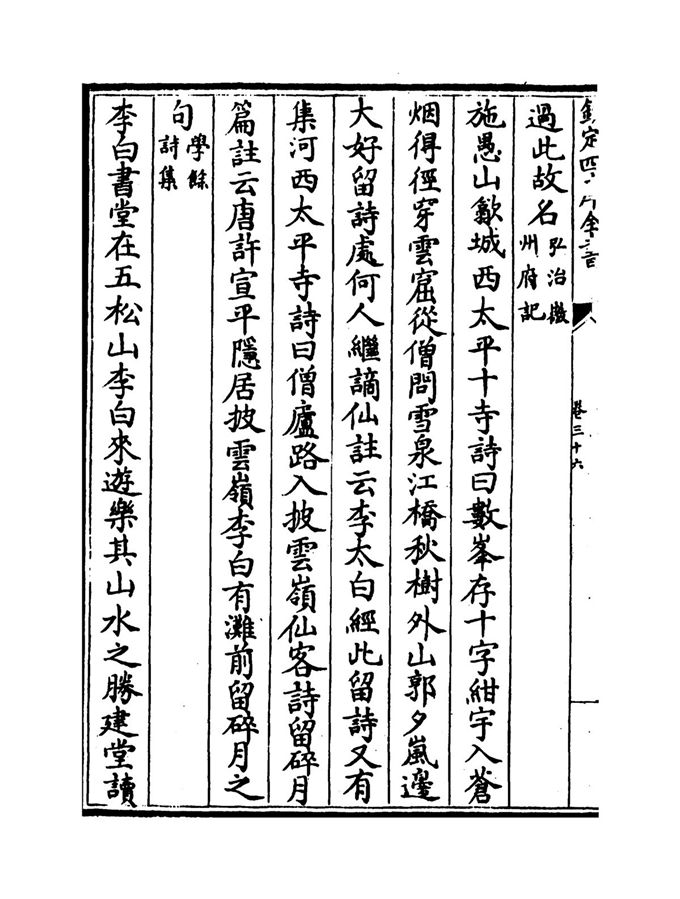 欽定四庫全書
卷三十六
過此故名弘治徽州府記
施愚山歙城西太平十寺詩曰數峯存十字紺宇入蒼
烟得徑穿雲窟從僧問雪泉江橋秋樹外山郭夕嵐邊
大好留詩處何人繼謫仙註云李太白經此留詩又有
集河西太平寺詩曰僧廬路入披雲嶺仙客詩留碎月
篇註云唐許宣平隱居披雲嶺李白有灘前留碎月之
句學餘詩集
李白書堂在五松山李白來遊樂其山水之勝建堂讀